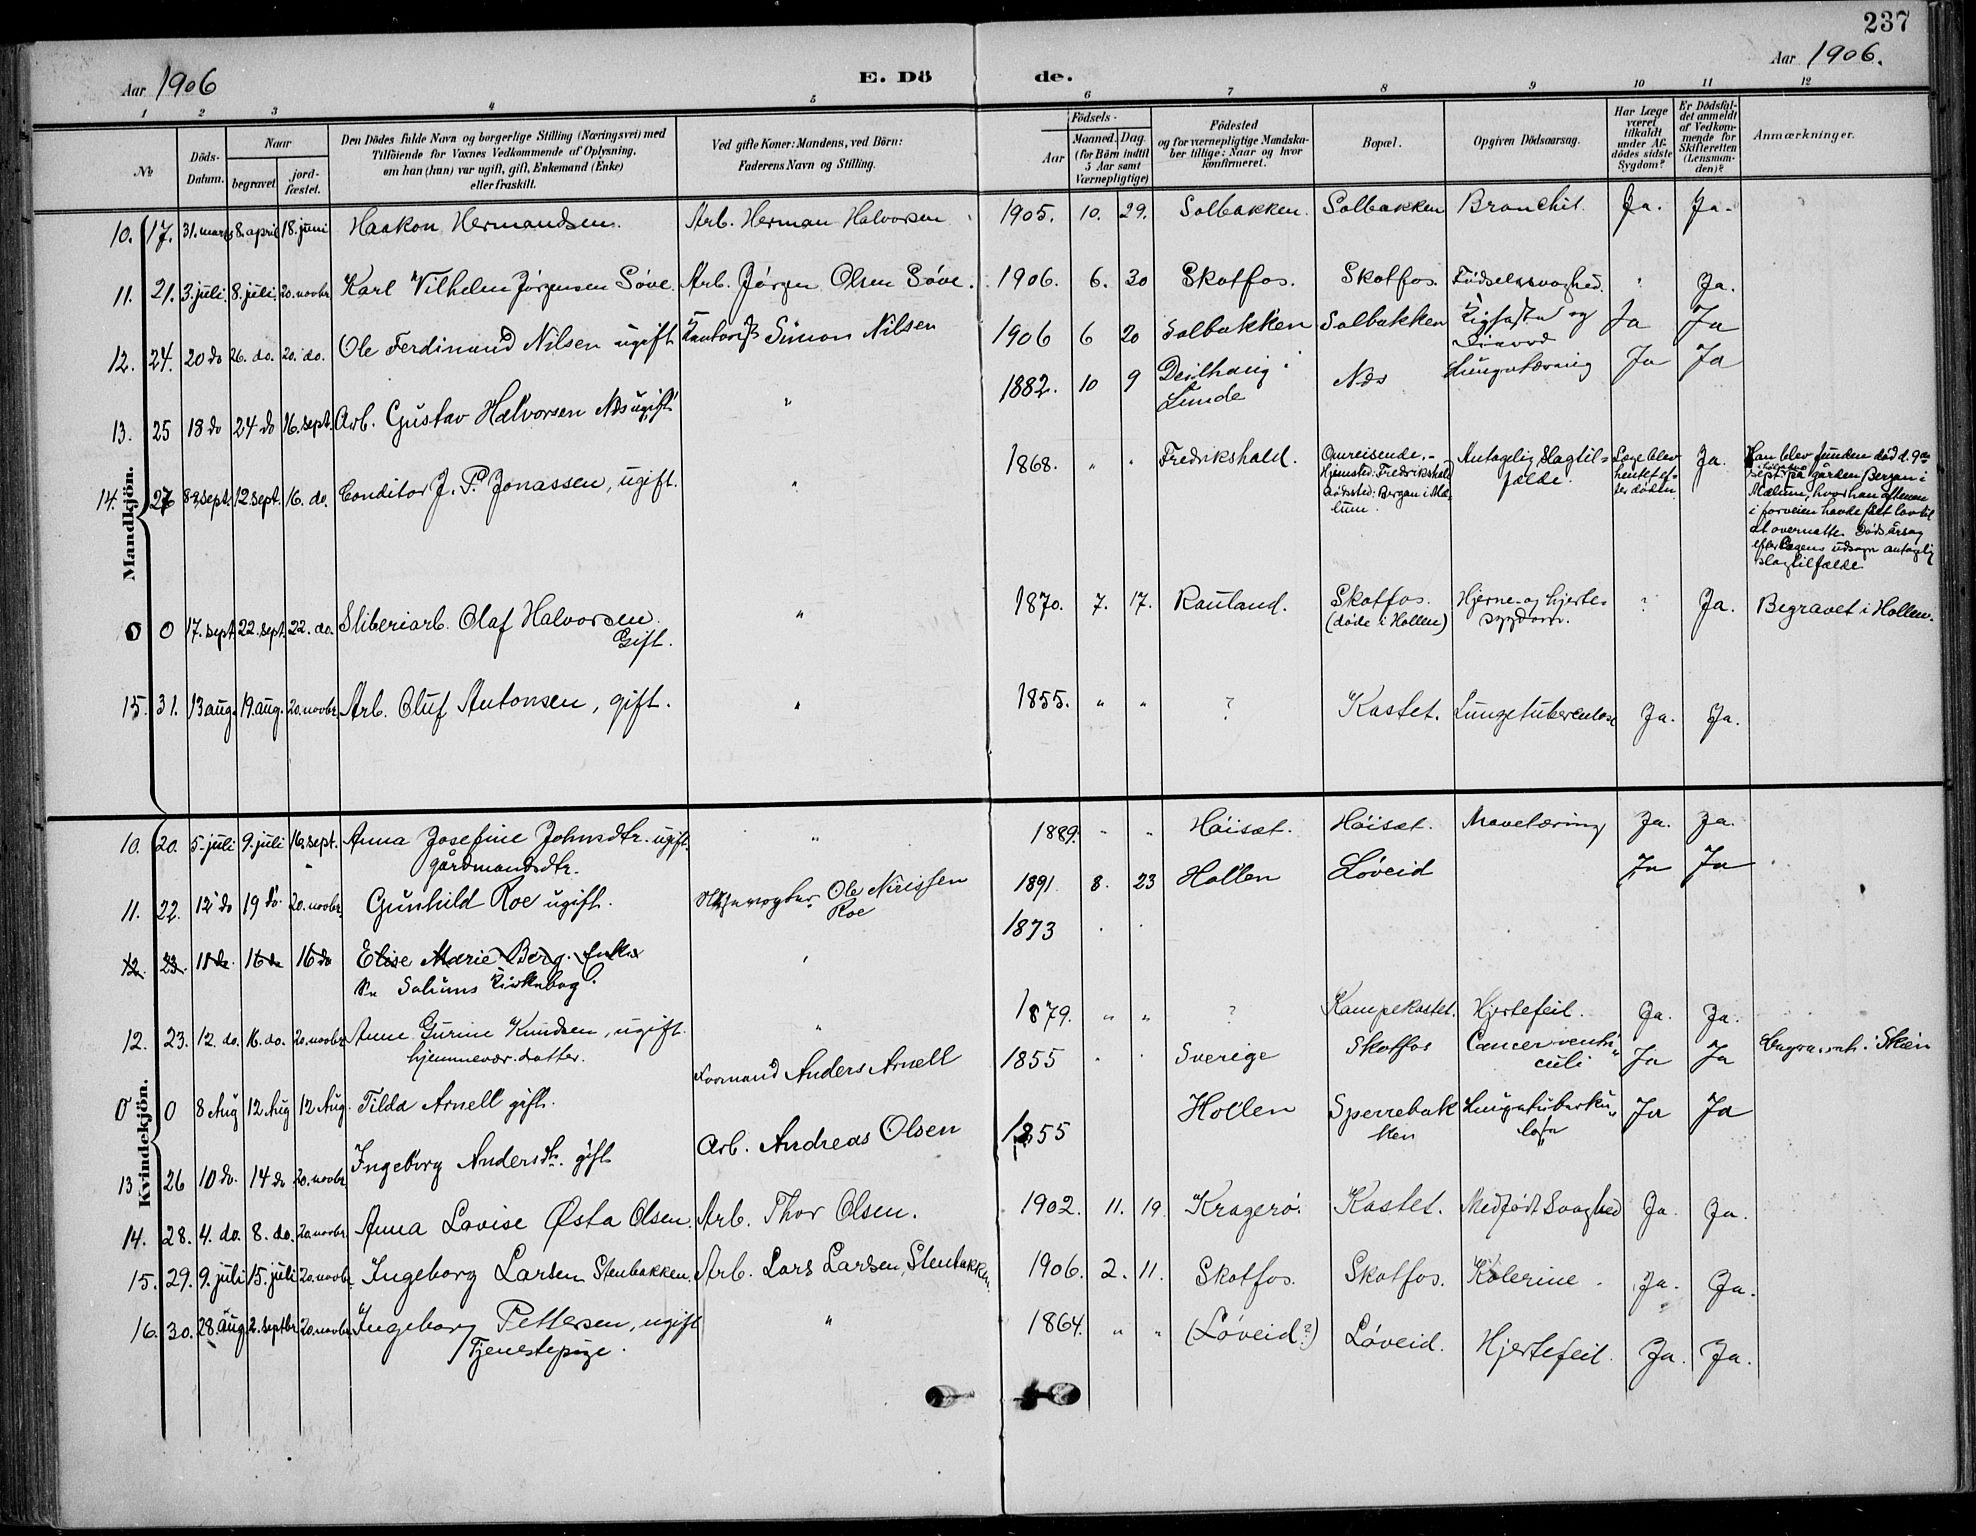 237
Aar 1906
E. Dö de.
Aar 1906.
1 2 3 4 5 6 7 8 9 10 11 12
№
Döds-Datum.
Naar
begravet
jord-fæstet.
Den Dödes fulde Navn og borgerlige Stilling (Næringsvei) med
Tilföiende for Voxnes Vedkommende af Oplysning,
om han (hun) var ugift, gift, Enkemand (Enke)
eller fraskilt.
Ved gifte Koner: Mandens, ved Börn:
Faderens Navn og Stilling.
Födsels-
Aar
Maaned. Dag.
(for Börn indtil
5 Aar samt
Værnepligtige)
Födested
og for værnepligtige Mandska-
ber tillige: Naar og hvor
konfirmeret.
Bopæl.
Opgiven Dödsaarsag.
Har Læge
været
tilkaldt
under Af-
dödes sidste
Sygdom?
Er Dödsfal-
det anmeldt
af Vedkom-
mende for
Skifteretten
(Lensman-
den)?
Anmærkninger.
Mandkjön.
10. 17. 31. marts 8. april 18. juni Haakon Hermandsen. Arb. Herman Halvorsen 1905. 10. 29. Solbakken. Solbakken Bronchit. Ja. Ja.
11. 21. 3. juli 8. juli 20. novbr. Karl Vilhelm Jørgensen Söve. Arb. Jørgen Olsen Söve. 1906. 6. 30 Skotfos. Skotfos. Fødselssvaghed. " Ja.
12. 24. 20 do 26. do. 20. do. Ole Ferdinand Nilsen ugift Simon Nilsen 1906 6 20 Solbakken Solbakken og Ja Ja
13. 25 18 do 24 do 16. sept. Arb. Gustav Halvorsen Næs ugift " 1882. 10 9 Deilhaug i
Lunde Næs Lungetæring Ja Ja
14. 27 8. sept. 12. sept. 16. do. Conditor J. P. Jonassen, ugift. " 1868. " " Fredrikshald. Omreisende.-
Hjemsted: Fredrikshald
Dødssted: Bergan i Mæ-
lum. Antagelig Slagtil-
fælde. Læge blev
hentet ef-
ter døden Ja. Han blev funden død d. 9de
sept. på gården Bergan i
Mælum, hvor han aftenen
i forveien havde fået lov til
at overnatte. Dødsårsag
efter Lægens udsagn antagelig
slagtilfælde.
0 0 17. sept. 22. sept. 22. do. Sliberiarb. Olaf Halvorsen.
Gift. " 1870. 7. 17. Rauland. Skotfos.
(døde i Hollen) Hjerne- og hjerte-
sygdom. ? Ja. Begravet i Hollen.
15. 31. 13 aug. 19. aug. 20. novbr. Arb. Oluf Antonsen, gift. " 1855. " " ? Kastet. Lungetuberculose Ja. Ja.
Kvindekjön.
10. 20. 5. juli 9. juli 16. sept. Anna Josefine Johnsdtr. ugift.
gårdmandsdtr. " 1889. " " Høisæt. Høisæt. Mavetæring Ja. Ja.
11. 22. 12 do 19 do. 20. novbr. Gunhild Roe ugift. Ole Nirissen
Roe 1891 8. 23 Hollen Løveid Ja Ja
12. 23. 11 do 16 do 16 do Elise Marie Berg. Enke
Se Solums Kirkebog. 1873
12. 23. 12. do. 16. do. 20. novbr. Anne Gurine Knudsen, ugift.
hjemmevær. datter. " 1879. " " ? Kampekastet. Hjertefeil. Ja. Ja.
0 0 8 Aug 12 Aug 12 Aug. Tilda Arnell gift. Formand Anders Arnell 1855 Sverige Skotfos Cancer ventri-
culi Ja Ja i Skien
13 26 10 do. 14 do 20. novbr. Ingeborg Andersdtr. gift Arb. Andreas Olsen 1855 Hollen Sperrebak
ken Lungetuberku-
lose Ja Ja
14. 28. 4. do. 8. do. 20. novbr. Anna Lovise Østa Olsen. Arb. Thor Olsen. 1902. 11. 19. Kragerø. Kastet. Medfødt Svaghed Ja. Ja.
15. 29. 9. juli 15. juli 20. novbr. Ingeborg Larsen Stenbakken. Arb. Lars Larsen, Stenbakken. 1906. 2. 11. Skotfos. Skotfos. Kolerine. Ja. Ja.
16. 30. 28. aug. 2. septbr. 20. novbr. Ingeborg Pettersen, ugift
Tjenestepige. " 1864. " " (Løveid?) Løveid. Hjertefeil. Ja. Ja.